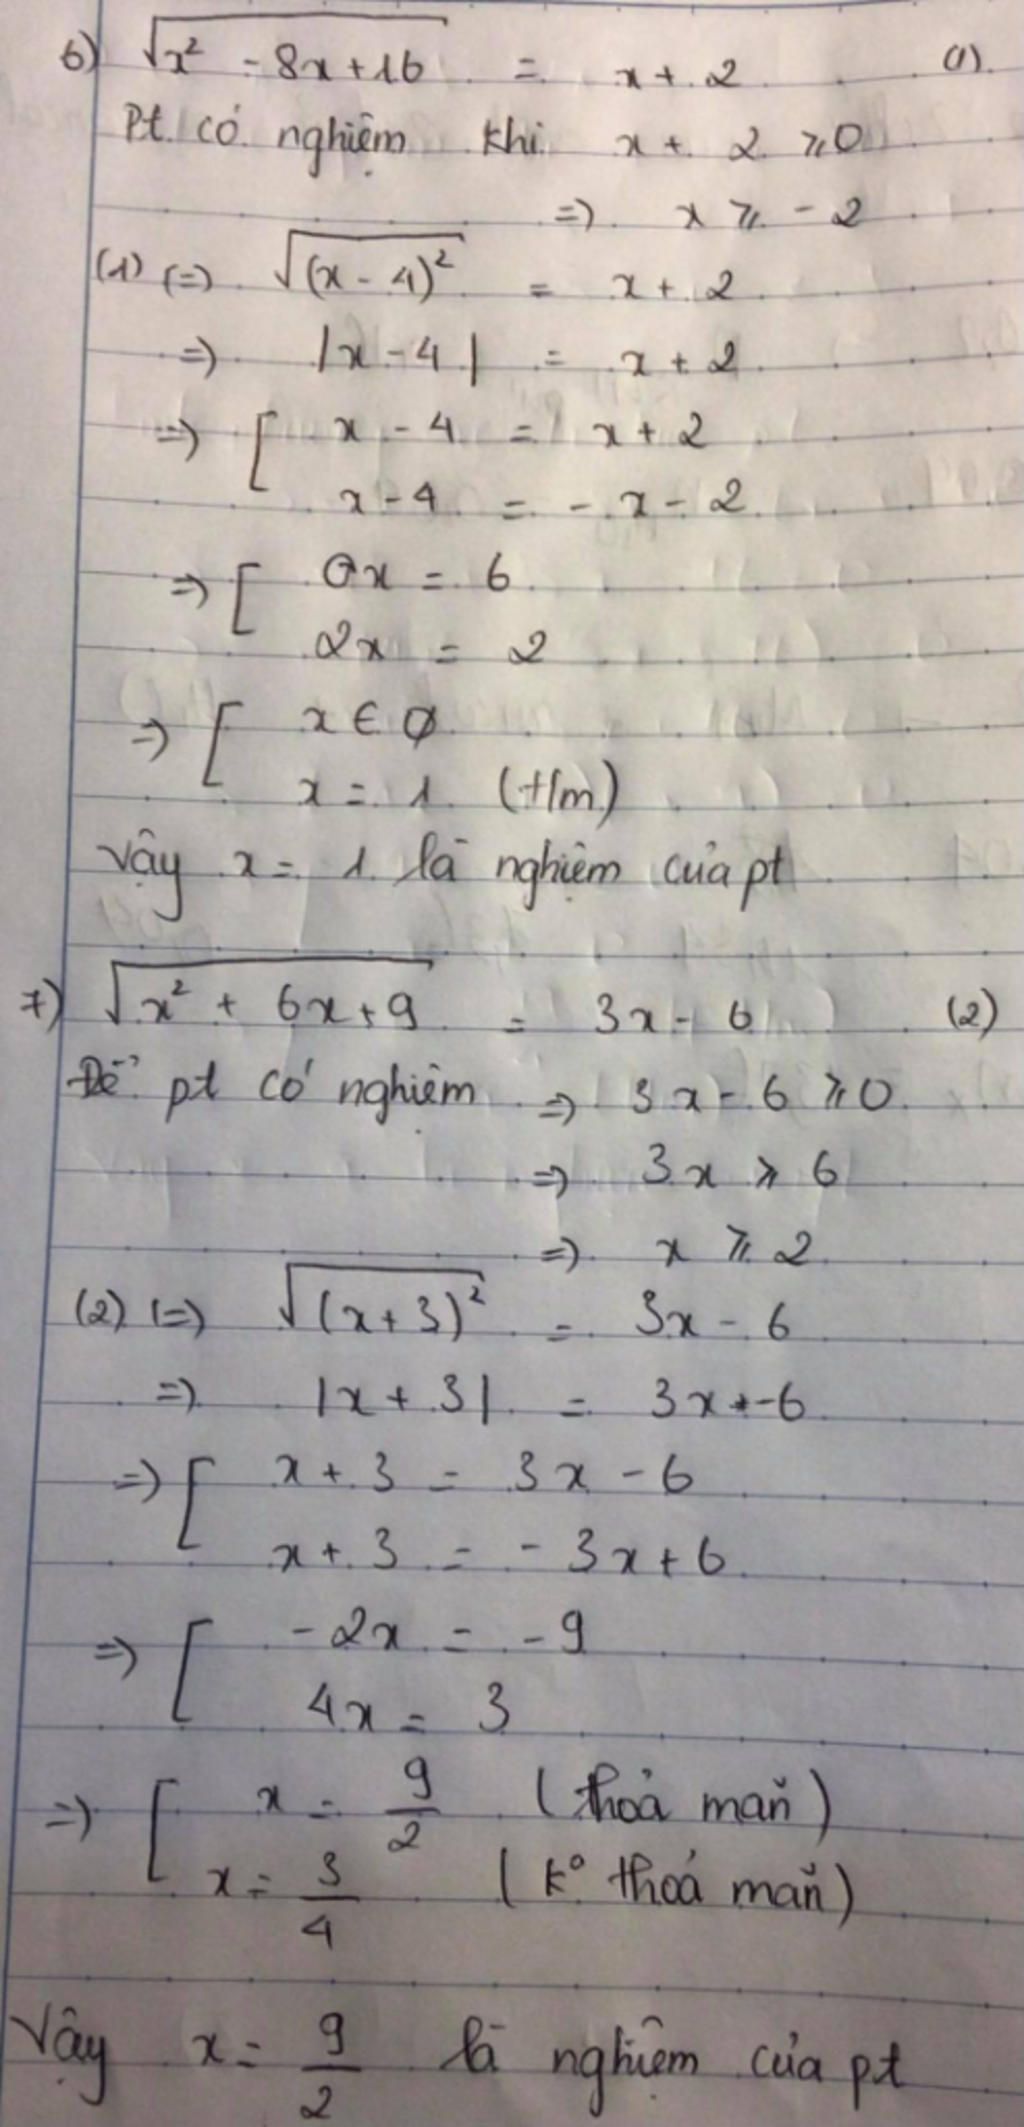 6) √(x² - 8x + 16) = x + 2 (1)
Pt có nghiệm khi x + 2 ≥ 0
=> x ≥ - 2
(1) (=) √((x - 4)²) = x + 2
=> |x - 4| = x + 2
=> [ x - 4 = x + 2
x - 4 = - x - 2
=> [ 0x = 6
2x = 2
=> [ x ∈ ∅
x = 1 (t/m)
Vậy x = 1 là nghiệm của pt
7) √(x² + 6x + 9) = 3x - 6 (2)
Để pt có nghiệm => 3x - 6 ≥ 0
=> 3x ≥ 6
=> x ≥ 2
(2) (=) √((x + 3)²) = 3x - 6
=> |x + 3| = 3x - 6
=> [ x + 3 = 3x - 6
x + 3 = - 3x + 6
=> [ - 2x = - 9
4x = 3
=> [ x = 9/2 (thỏa mãn)
x = 3/4 (k° thoả mãn)
Vậy x = 9/2 là nghiệm của pt